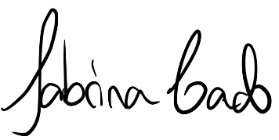 Sabrina Cado